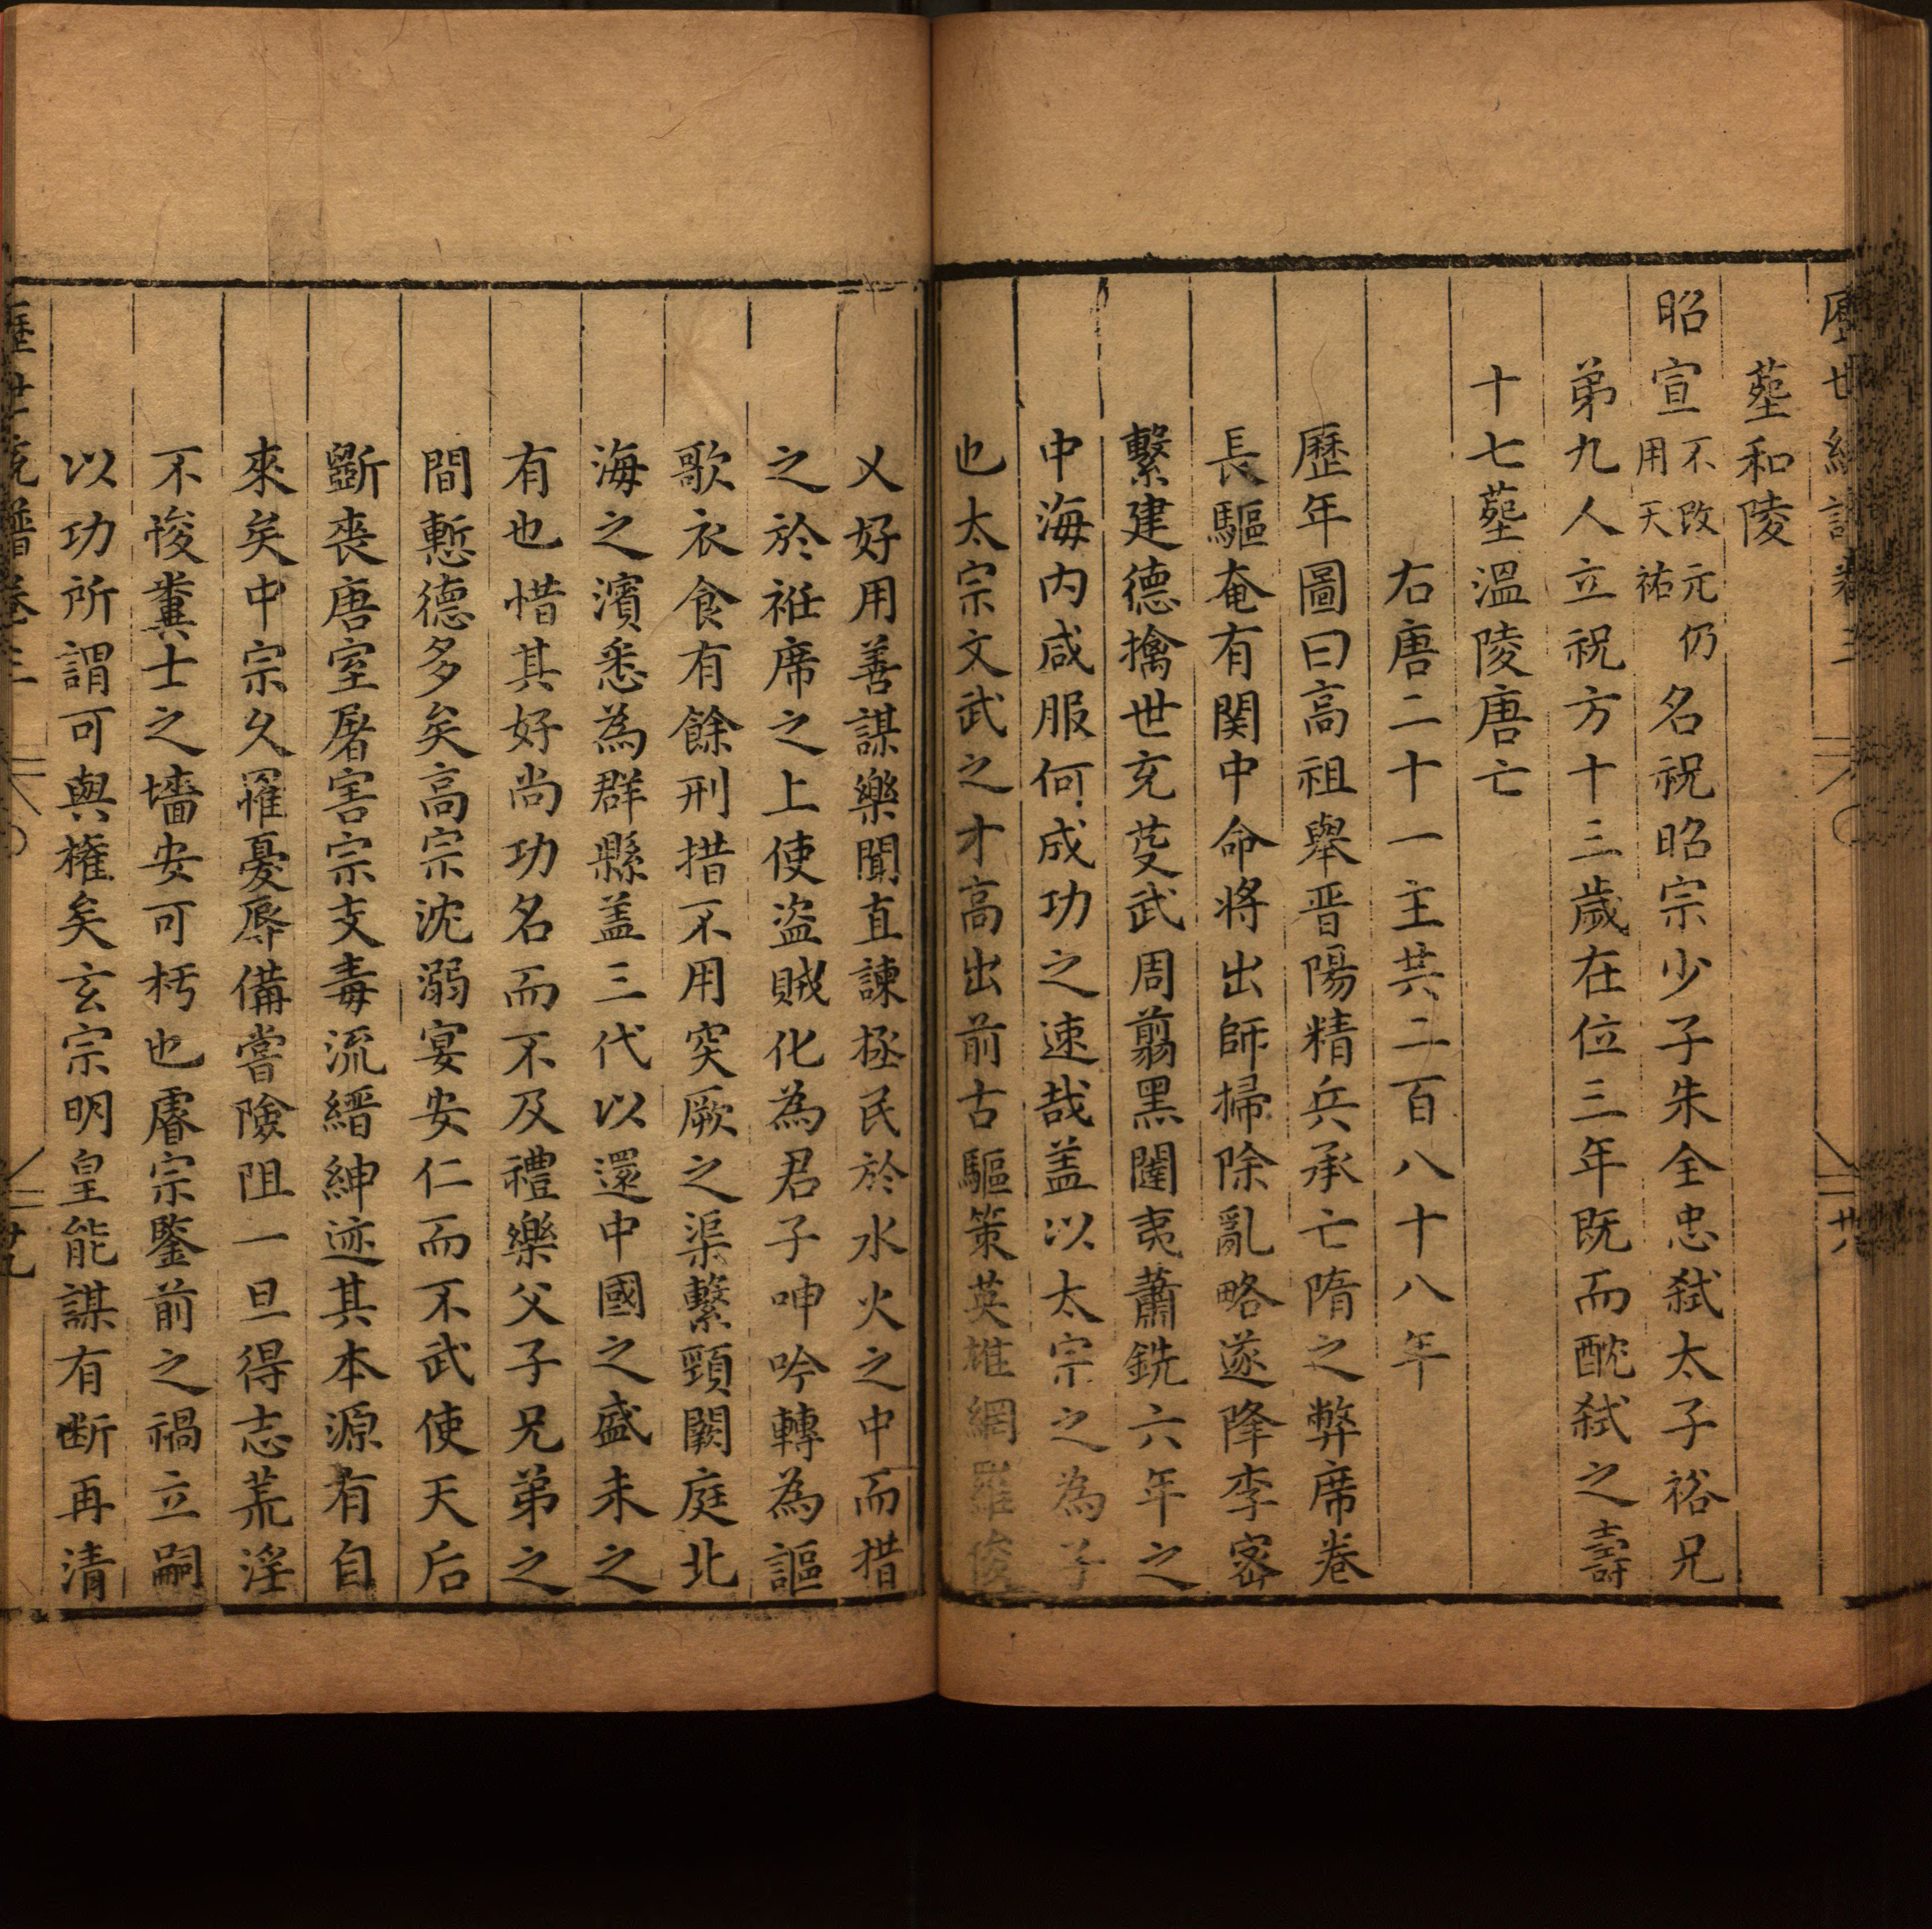 歷世統譜卷三 廿八
塟和陵
昭宣不改元仍用天祐名祝昭宗少子朱全忠弑太子裕兄
弟九人立祝方十三歲在位三年既而酖弑之壽
十七塟溫陵唐亡
右唐二十一主共二百八十八年
歷年圖曰高祖舉晋陽精兵承亡隋之弊席卷
長驅奄有関中命將出師掃除亂略遂降李宻
繫建德擒世充芟武周翦黑闥夷蕭銑六年之
中海内咸服何成功之速哉盖以太宗之為子
也太宗文武之才高出前古驅策英雄網羅俊
乂好用善謀樂聞直諫拯民於水火之中而措
之於袵席之上使盗賊化為君子呻吟轉為謳
歌衣食有餘刑措不用突厥之渠繫頸闕庭北
海之濱悉為群縣盖三代以還中國之盛未之
有也惜其好尚功名而不及禮樂父子兄弟之
間慙德多矣高宗沈溺宴安仁而不武使天后
斵喪唐室屠害宗支毒流縉紳迹其本源有自
來矣中宗久罹憂辱備嘗險阻一旦得志荒淫
不悛糞士之墻安可杇也睿宗鑒前之禍立嗣
以功所謂可與權矣玄宗明皇能謀有断再清
歷世統譜卷三 廿九